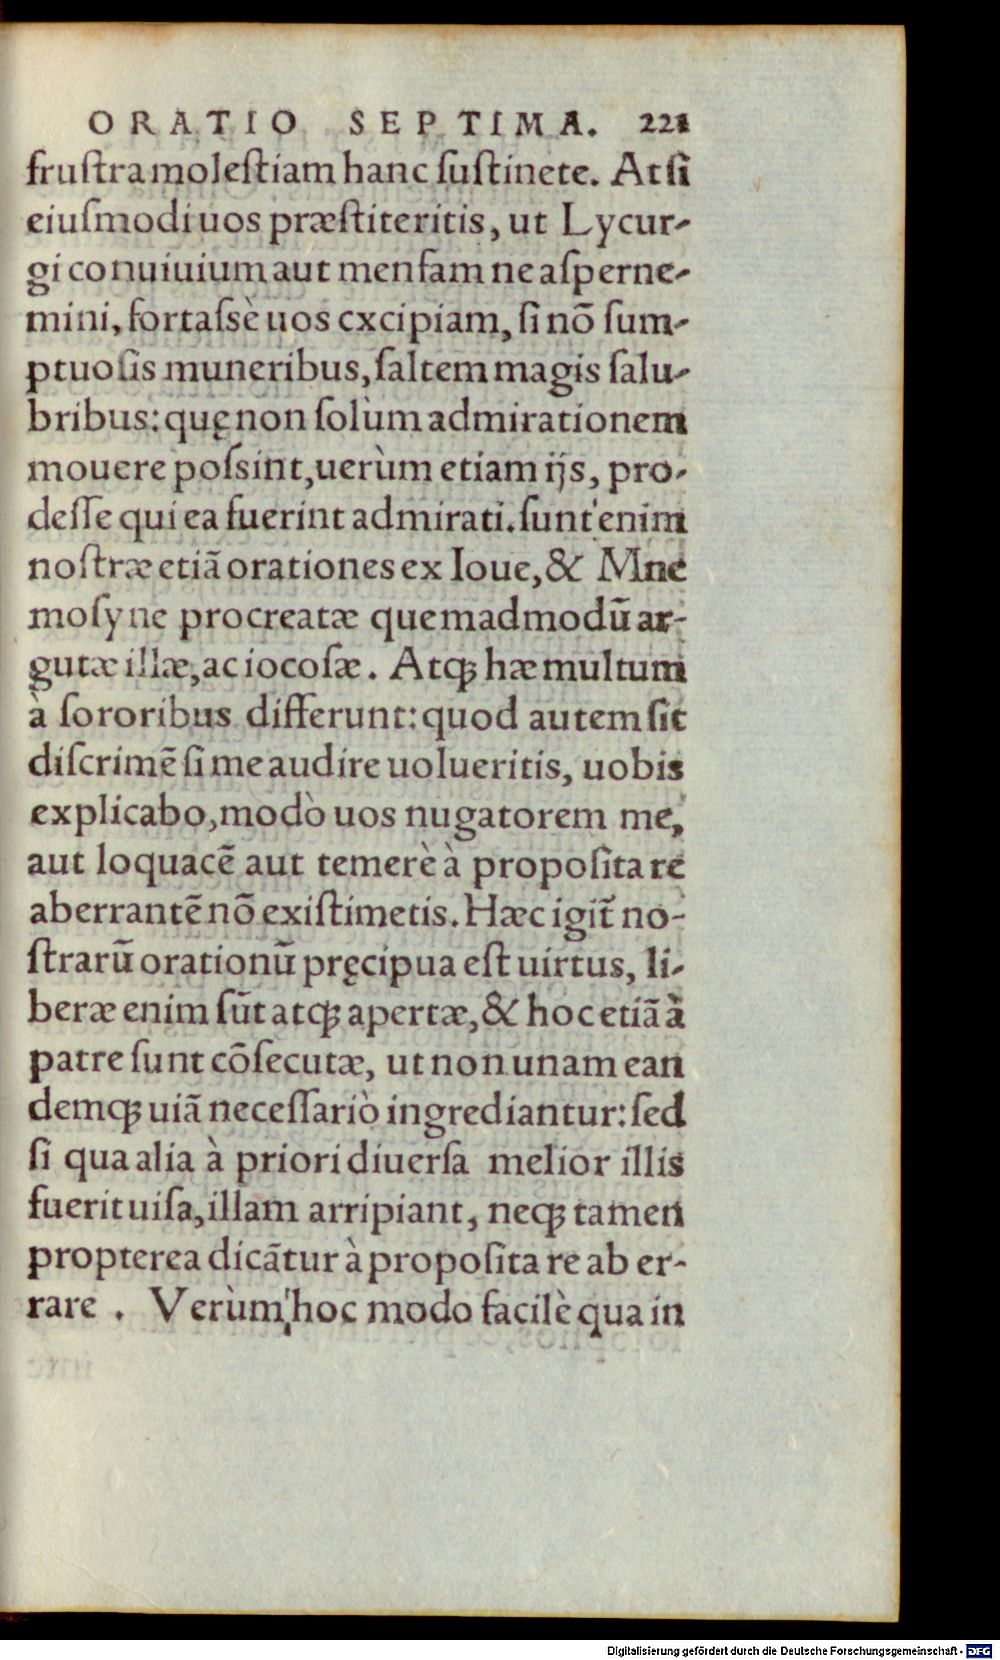 ORATIO SEPTIMA. 221
fruſtra moleſtiam hanc ſuſtinete. At ſi
eiuſmodi uos præſtiteritis, ut Lycur-
gi conuiuium aut menſam ne aſperne-
mini, fortaſsè uos excipiam, ſi nõ ſum-
ptuoſis muneribus, ſaltem magis ſalu-
bribus: quę non ſolùm admirationem
mouere poſsint, uerùm etiam ijs, pro-
deſſe qui ea fuerint admirati. ſunt enim
noſtræ etiã orationes ex Ioue, & Mne
moſyne procreatæ quemadmodũ ar-
gutæ illæ, ac iocoſæ. Atq; hæ multum
à ſororibus differunt: quod autem ſit
diſcrimẽ ſi me audire uolueritis, uobis
explicabo, modò uos nugatorem me,
aut loquacẽ aut temerè à propoſita re
aberrantẽ nõ exiſtimetis. Hæc igit̃ no-
ſtrarũ orationũ pręcipua eſt uirtus, li-
beræ enim sũt atq; apertæ, & hoc etiã à
patre ſunt cõſecutæ, ut non unam ean
demq; uiã neceſſariò ingrediantur: ſed
ſi qua alia à priori diuerſa melior illis
fuerit uiſa, illam arripiant, neq; tamen
propterea dicãtur à propoſita re ab er-
rare . Verùm hoc modo facilè qua in
Digitalisierung gefördert durch die Deutsche Forschungsgemeinschaft - DFG